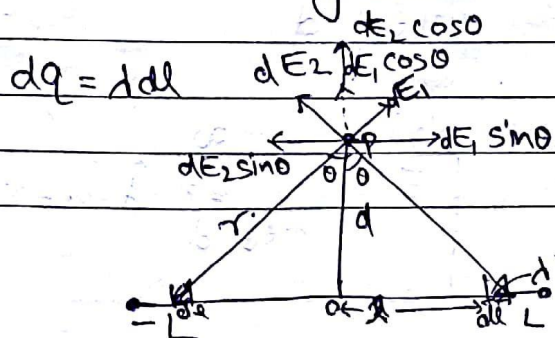 dE₂ cosθ
dq = λdl
dE₂
dE₁ cosθ
dE₁
P
dE₁ sinθ
dE₂ sinθ
θ
θ
r
d
λ
-L
dl
O
l
dl
L